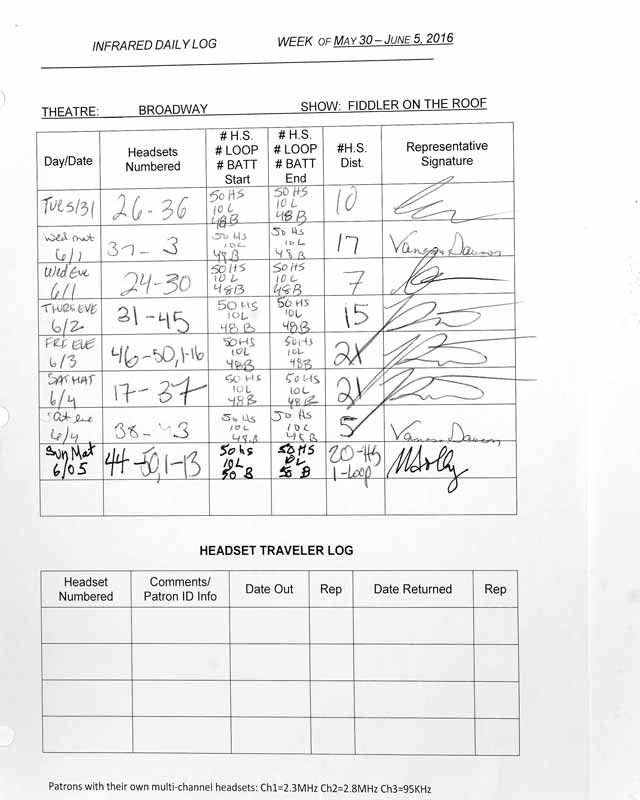 INFRARED DAILY LOG WEEK OF MAY 30 – JUNE 5, 2016
THEATRE: BROADWAY SHOW: FIDDLER ON THE ROOF
Day/Date Headsets Numbered # H.S. # LOOP # BATT Start # H.S. # LOOP # BATT End #H.S. Dist. Representative Signature
TUES/31 26-36 50 HS 10 L 48 B 50 HS 10 L 48 B 10
Wed mat 6/1 37- 3 50 HS 10L 48 B 50 HS 10L 48 B 17
Wed Eve 6/1 24-30 50HS 10L 48B 50HS 10L 48B 7
THURS EVE 6/2 31-45 50 HS 10L 48 B 50 HS 10L 48 B 15
FRI EVE 6/3 46-50,1-16 50HS 10L 48B 50HS 10L 48B 21
SAT MAT 6/4 17-37 50 HS 10L 48 B 50HS 10L 48 B 21
Sat eve 6/4 38- 50 HS 10L 48B 50 HS 10L 48B 5
Sun Mat 6/05 44-50,1-13 50 hs 10L 50 B 50 HS 10L 50 B 20-HS 1-loop
HEADSET TRAVELER LOG
Headset Numbered Comments/ Patron ID Info Date Out Rep Date Returned Rep
Patrons with their own multi-channel headsets: Ch1=2.3MHz Ch2=2.8MHz Ch3=95KHz